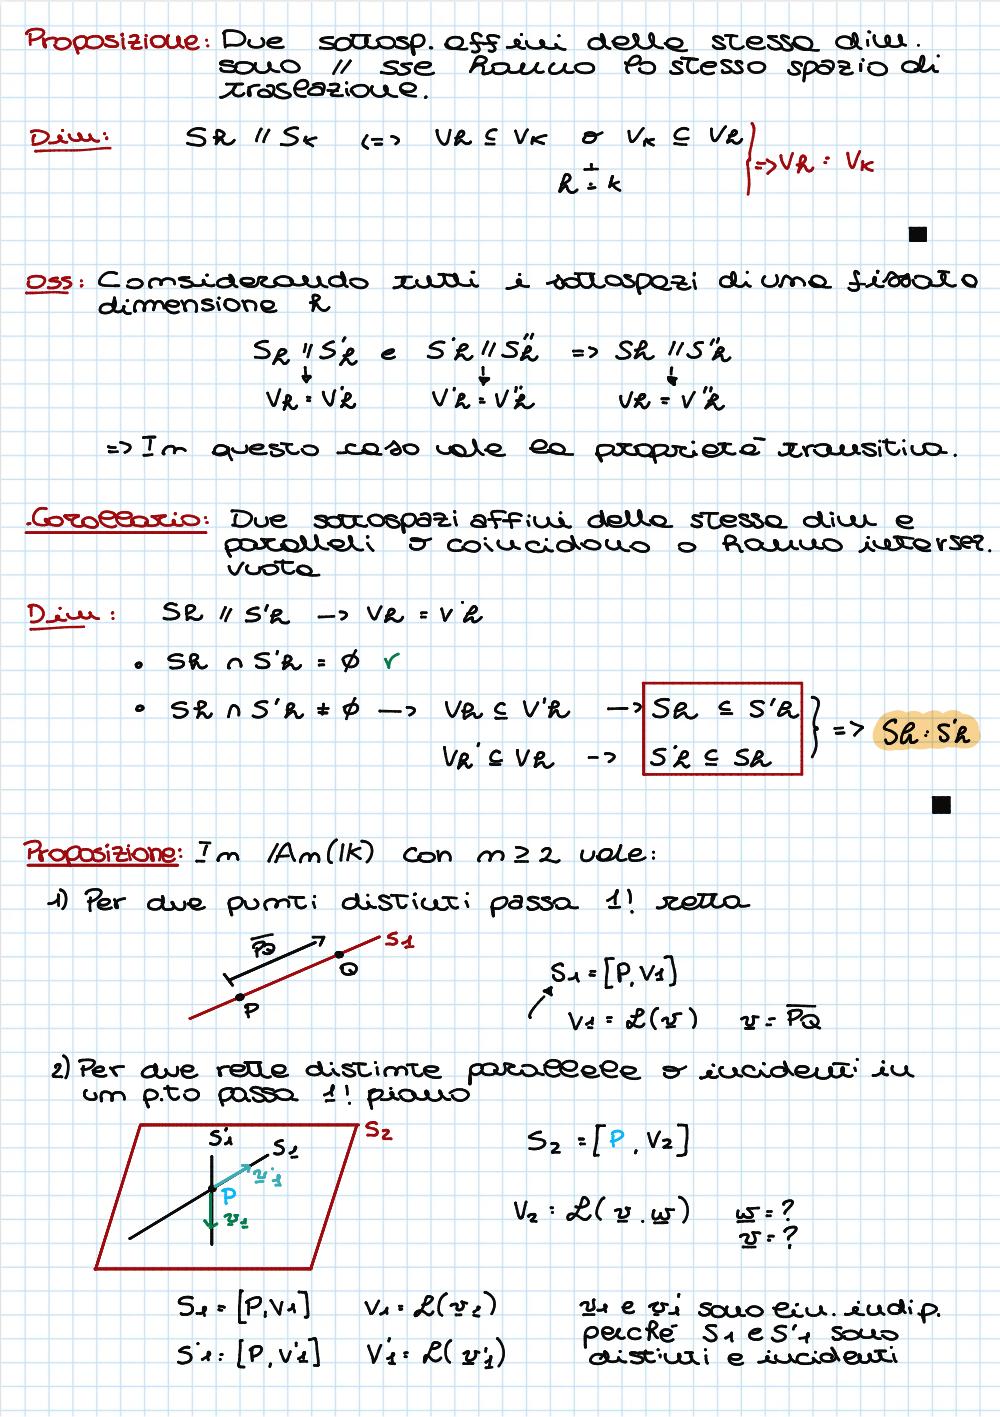 Proposizione: Due sottosp. affini della stessa dim.
sono // sse hanno lo stesso spazio di
traslazione.
Dim: Sh // Sk <=> Vh ⊆ Vk o Vk ⊆ Vh } => Vh = Vk
h = k
Oss: Considerando tutti i sottospazi di una fissato
dimensione h
Sh // S'h e S'h // S''h => Sh // S''h
↓ ↓ ↓
Vh = V'h V'h = V''h Vh = V''h
=> In questo caso vale la proprietà transitiva.
.Corollario: Due sottospazi affini della stessa dim e
paralleli o coincidono o hanno intersez.
vuota
Dim: Sh // S'h –> Vh = V'h
• Sh ∩ S'h = ∅ ✓
• Sh ∩ S'h ≠ ∅ –> Vh ⊆ V'h –> Sh ⊆ S'h } => Sh = S'h
Vh' ⊆ Vh –> S'h ⊆ Sh
Proposizione: In /An(lK) con n ≥ 2 vale:
1) Per due punti distinti passa 1! retta
PQ S1
Q
P
S1 = [P, V1]
V1 = L(v) v = PQ
2) Per due rette distinte parallele o incidenti in
un p.to passa 1! piano
S'1 S1 S2
v'1
P
v1
S2 = [P, V2]
V2 = L(v, w) w = ?
v = ?
S1 = [P, V1] V1 = L(v1) v1 e v1' sono lin. indip.
perché S1 e S'1 sono
S'1 = [P, V'1] V'1 = L(v'1) distinti e incidenti